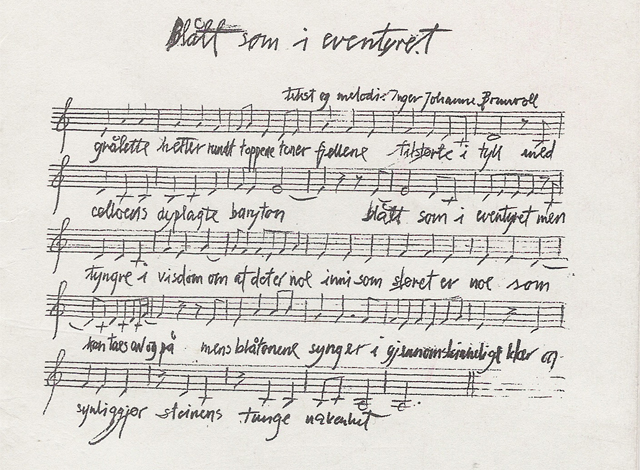 Blått som i eventyret
tekst og melodi: Inger Johanne
grålette hetter rundt toppene toner fjellene tilslørte i tyll med
celloens dyplagte baryton blått som i eventyret men
tyngre i visdom om at det er noe inni som sløret er noe som
kan taes av og på mens blåtonene synger i gjennomskinneligt klær og
synliggjør steinens tunge nakenhet